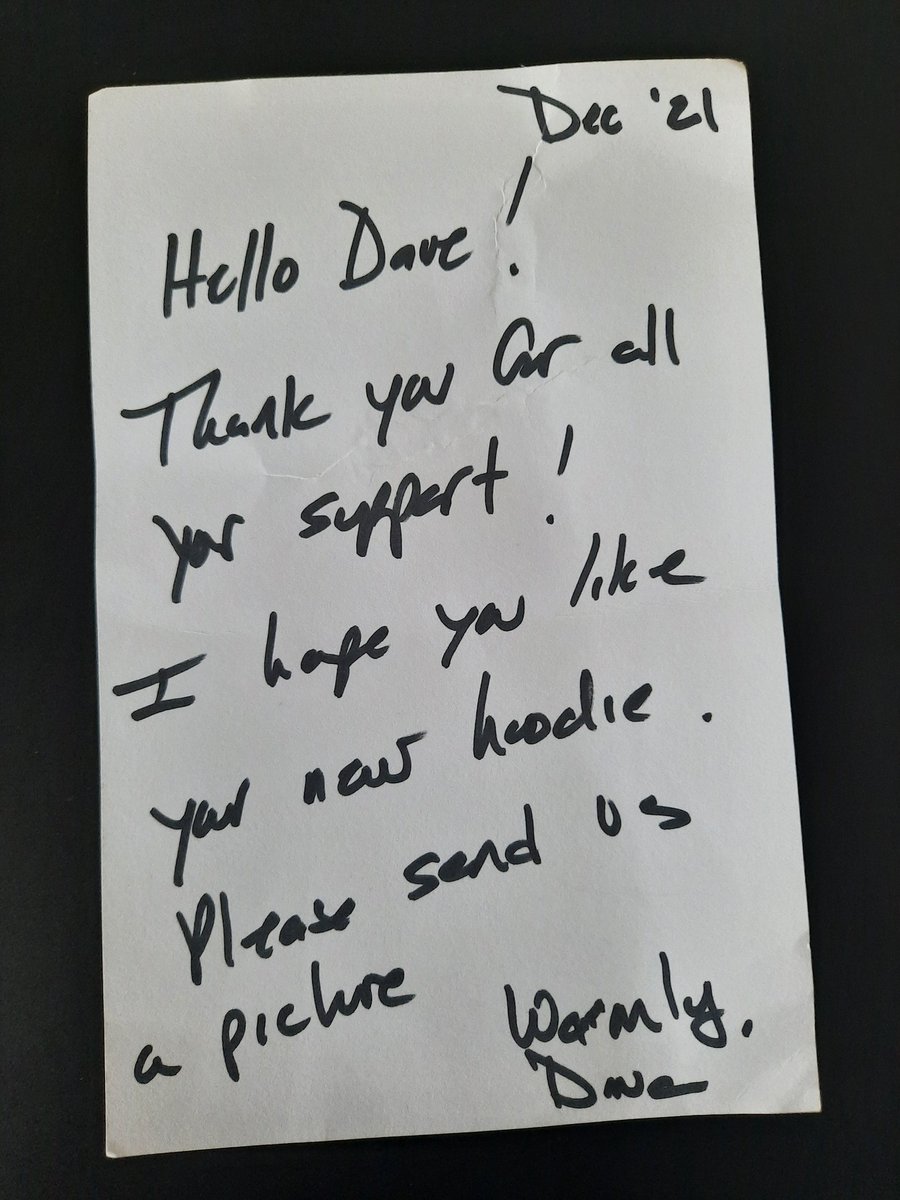 Dec '21
Hello Dave!
Thank you for all
your support!
I hope you like
your new hoodie.
Please send us
a picture
Warmly,
Dave